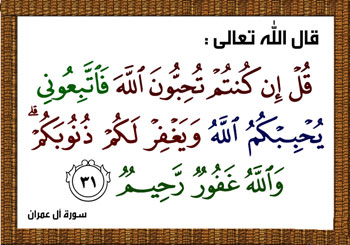 قال الله تعالى :
قُلْ إِن كُنتُمْ تُحِبُّونَ ٱللَّهَ فَٱتَّبِعُونِي
يُحْبِبْكُمُ ٱللَّهُ وَيَغْفِرْ لَكُمْ ذُنُوبَكُمْ ۗ
وَٱللَّهُ غَفُورٌ رَّحِيمٌ ٣١
سورة آل عمران